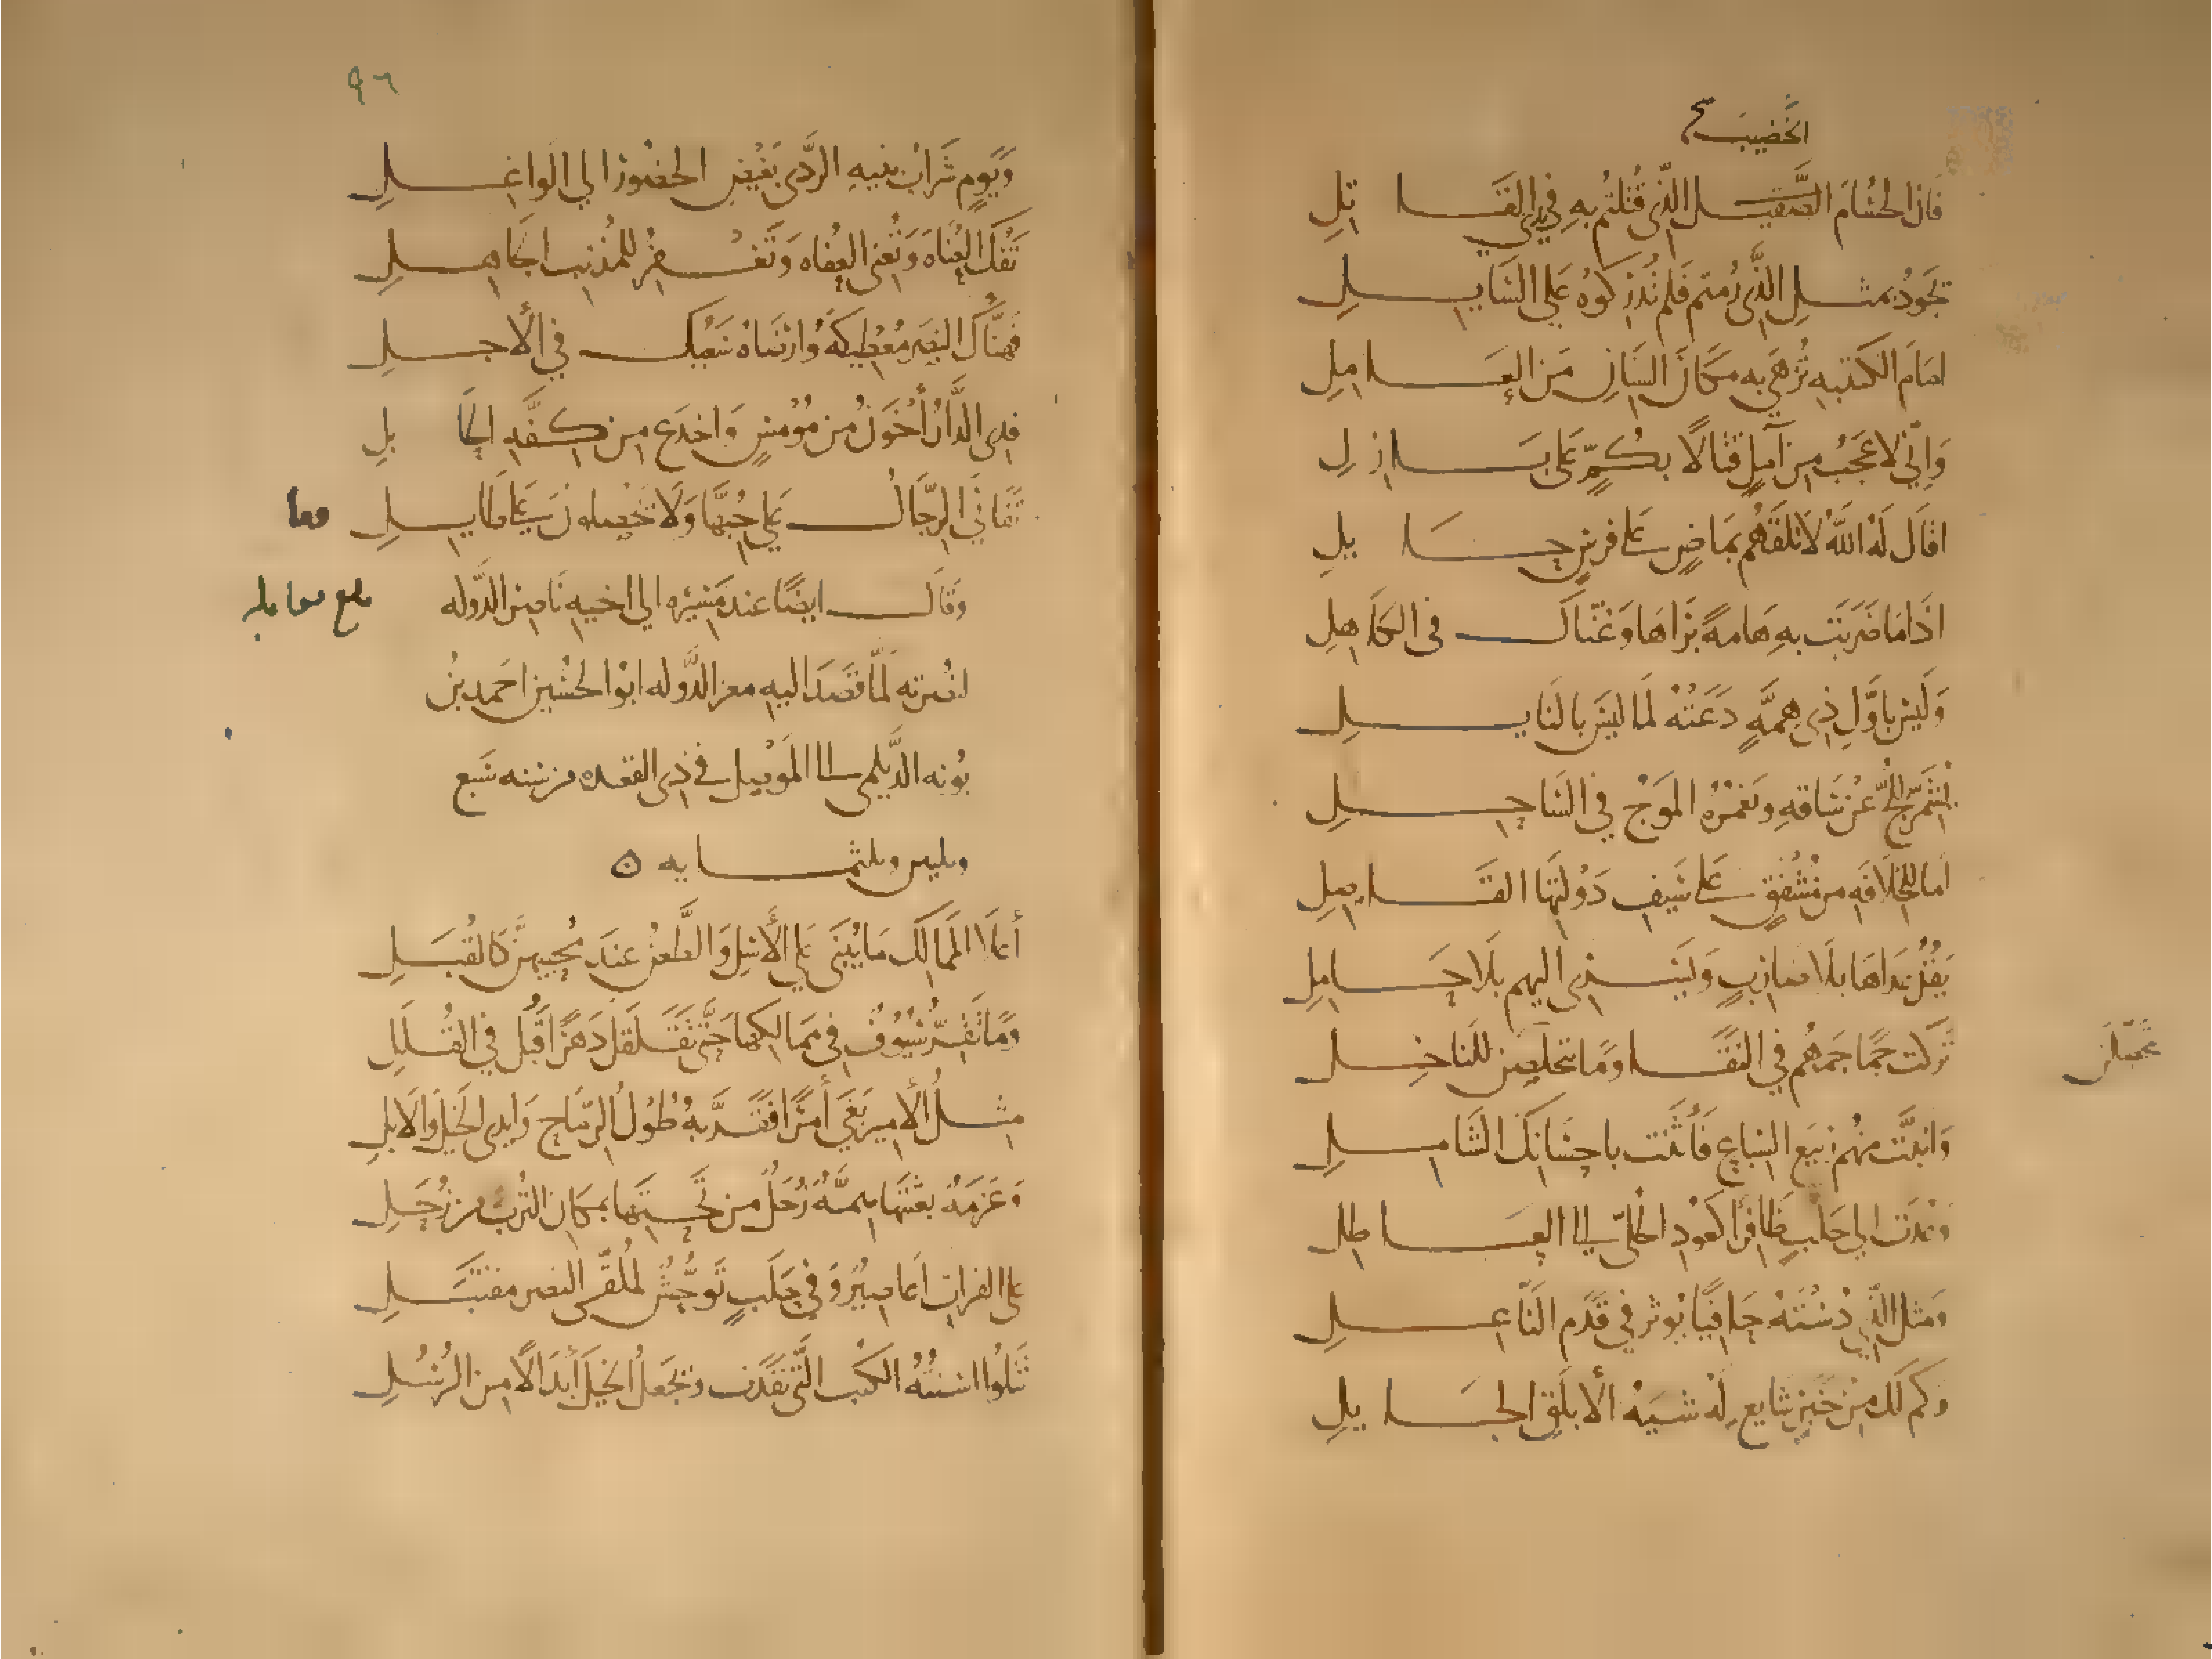 الخضيب صح
فَانَّ الحُسَامَ الصَّقيل الذّي قُتلتُم بهِ في يدي القَاتلِ
تجَودُ بمثلِ الذّي رُمتم فَلم تُدركوهُ عَلى السَّايلِ
امَامَ الكتيبه تُزهَى به مكَانَ السِّنانِ مَن العَاملِ
وَانّي لاعجَبُ من آملٍ قتَالًا بكُمٍّ عَلى بَازلِ
اقَالَ لَهُ اللّهُ لَا تلقَهُم بمَاضٍ عَلى فرسٍ حَايلِ
اذَا مَا ضَرَبتَ بهِ هَامهً بَرَاهَا وَغَنّاكَ فى الكَاهلِ
وَلَيسَ باوَّلِ ذي هِمَّهٍ دَعَتهُ لمَا ليسَ بالنَايلِ
يُشَمّرُ للُّجِّ عَن سَاقهِ وَيَغمُرُهُ المَوجُ في السَّاحِلِ
أما للخلَافَهِ من مُشفقٍ عَلى سَيفِ دَولتِهَا الفَاصلِ
يَقُدُّ عِدَاهَا بلَا ضَاربٍ وَيَسرِى اليهم بَلَا حَاملِ
تَركتَ جمَاجمَهُم في النَّقَا ومَا يتخَلصنَ للنَاخلِ
يُحَصَّلنَ
وَانبتَّ منهُم رَبيعَ السّباعِ فَأثنَت باحسَانكَ الشَاملِ
وَعُدتَ الى حَلَبٍ ظَافرًا كعَودِ الحُليّ الى العَاطلِ
وَمثل الذّي دُستَهُ حَافيًا يُوثر في قَدَمِ النّاعِلِ
وكم لَك من خَبَرٍ شَايعٍ لَهُ شيَهُ الأَبلَقِ الجَايلِ
٩٦
وَيَومٍ شَرَابُ بَنيهِ الرَّدى بَغيضِ الحضُورِ الى الوَاغلِ
تَفُكّ العُنَاهَ وَتُغنى العُفَاه وَتَغفرُ للمُذنب الجَاهلِ
فهنَّأَكَ النصرَ مُعْطيكَهُ وَارضَاهُ سَعيُكَ في الأجلِ
فذى الدَّارُ أَخوَنُ من مُومسٍ وَاخدَع من كفَّهِ الحَابلِ
تَفَانَى الرّجَالُ عَلى حُبّهَا وَلَا تحَصلونَ عَلى طَايلِ
وَقَالَ ايضًا عند مَسيره الى اخيهِ نَاصر الدَّوله
لنصرته لَمّا قصَدَ اليهِ معز الدَّوله ابوا الحُسَين احمد بنُ
بُوَيه الدَّيلمى الى المَوصل فى ذى القعده من سَنه سَبع
وثلثين وثلثمايه ه
أعلَا المَمالك مَا يُبنَى عَلى الأَسَلِ وَالطَّعنُ عندَ مُحبيهنَّ كَالقُبَلِ
ومَا تَقرُّ سُيُوفٌ فى مَمالكهَا حَتَّى تقَلقَلَ دَهرًا قَبلُ في القُلَلِ
مثلُ الأَمير بَغَى أَمرًا فَقَرَّبهُ طُولُ الرّمَاحِ وَايدى الخَيلِ وَالابلِ
وَعَزمَهٌ بعَثتهَا همَّهٌ زُحَلٌ من تحَتهَا بمكَانِ التُربِ من زُحَلِ
على الفراتِ أَعَاصيرٌ وَفى حَلَبٍ تَوَحُّشٌ لمُلَقَّى النصرِ مقتبَلِ
تَتلُوا اسنَتُهُ الكُتب التّى نفَذت وَتجَعلُ الخيلَ أَبدَالًا منَ الرُسُلِ